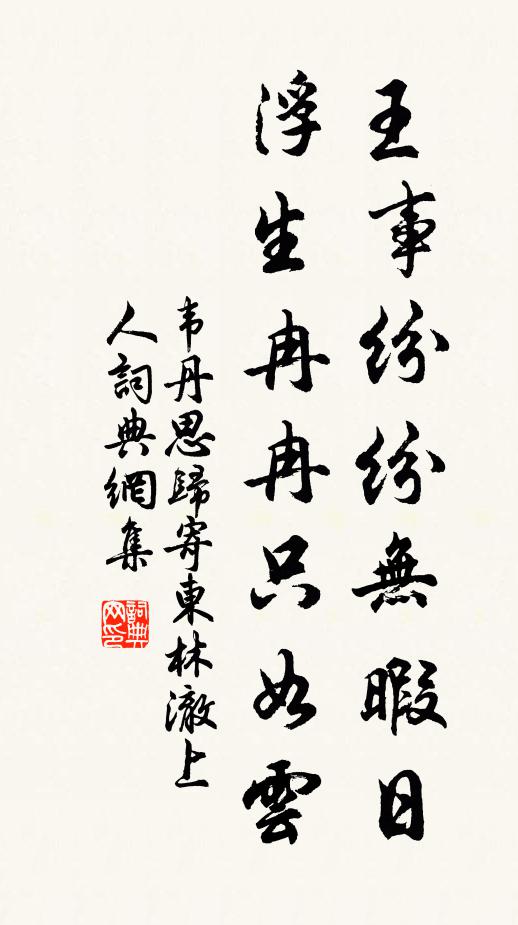 王事紛紛無暇日
浮生冉冉只如雲
韦丹思歸寄東林澈上
人詞典網集
詞典
网印